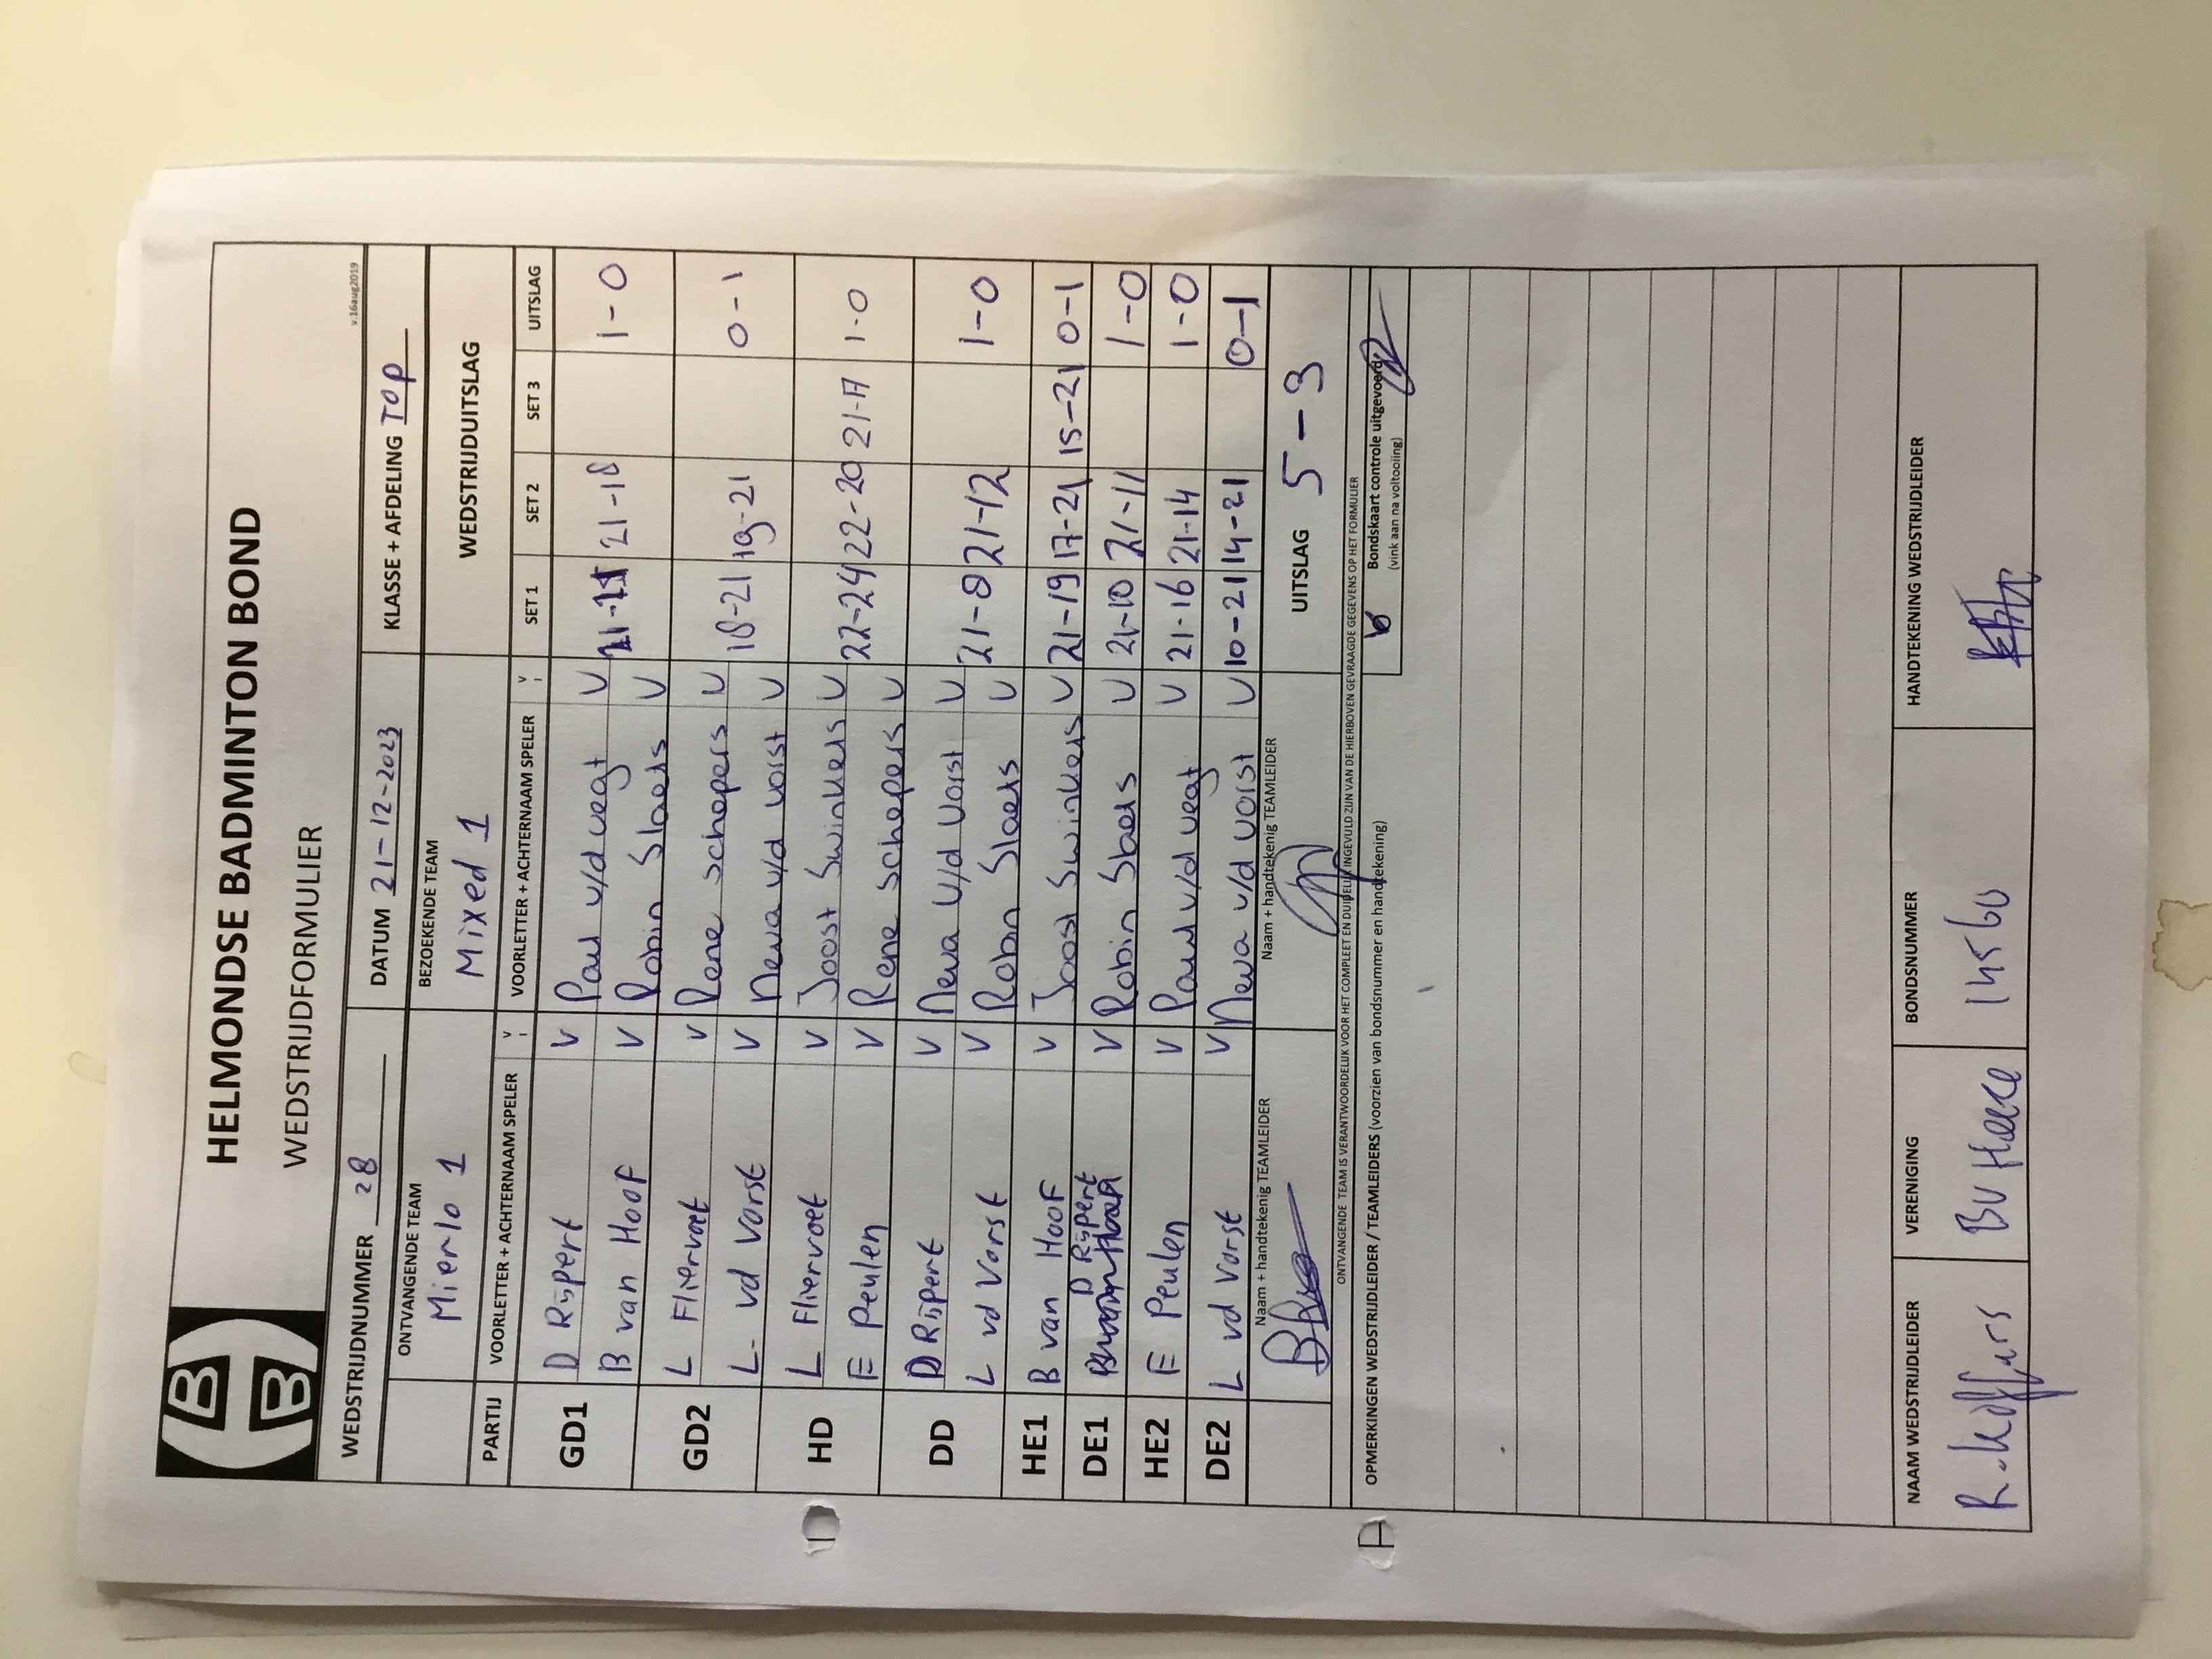 HELMONDSE BADMINTON BOND
WEDSTRIJDFORMULIER
v.16aug2019
WEDSTRIJDNUMMER 28 DATUM 21-12-2023 KLASSE + AFDELING TOP
ONTVANGENDE TEAM BEZOEKENDE TEAM WEDSTRIJDUITSLAG
Mierlo 1 Mixed 1
PARTIJ VOORLETTER + ACHTERNAAM SPELER V VOORLETTER + ACHTERNAAM SPELER V SET 1 SET 2 SET 3 UITSLAG
GD1 D Rijpert V Paul v/d vegt V 21-18 1-0
B van Hoof V Robin Slaets V
GD2 L Fliervoet V Rene schepers V 18-21 19-21 0-1
L vd Vorst V Newa v/d vorst V
HD L Fliervoet V Joost Swinkels V 22-24 22-20 21-17 1-0
E Peulen V Rene schepers V
DD D Rijpert V Neva v/d Vorst V 21-8 21-12 1-0
L vd Vorst V Robin Slaets V
HE1 B van Hoof V Joost Swinkels V 21-19 17-21 15-21 0-1
DE1 D Rijpert V Robin Slaets V 21-10 21-11 1-0
HE2 E Peulen V Paul v/d vegt V 21-16 21-14 1-0
DE2 L vd Vorst V Newa v/d vorst V 10-21 14-21 0-1
Naam + handtekenig TEAMLEIDER Naam + handtekenig TEAMLEIDER UITSLAG 5-3
ONTVANGENDE TEAM IS VERANTWOORDELIJK VOOR HET COMPLEET EN DUIDELIJK INGEVULD ZIJN VAN DE HIERBOVEN GEVRAAGDE GEGEVENS OP HET FORMULIER
OPMERKINGEN WEDSTRIJDLEIDER / TEAMLEIDERS (voorzien van bondsnummer en handtekening)
Bondskaart controle uitgevoerd
(vink aan na voltooiing)
NAAM WEDSTRIJDLEIDER VERENIGING BONDSNUMMER HANDTEKENING WEDSTRIJDLEIDER
BV 14560